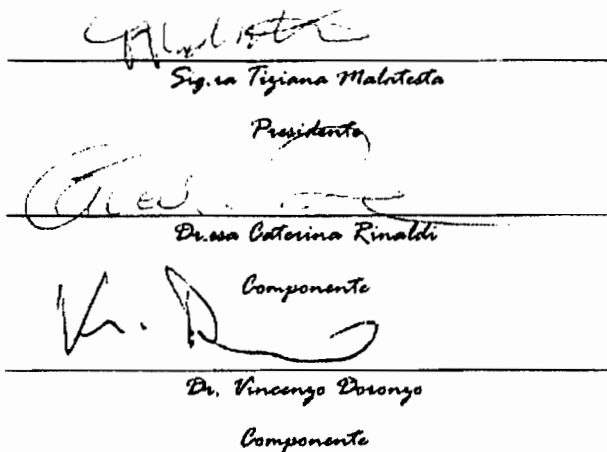 Sig.ra Tiziana Malatesta
Presidente
Dr.ssa Caterina Rinaldi
Componente
Dr. Vincenzo Doronzo
Componente